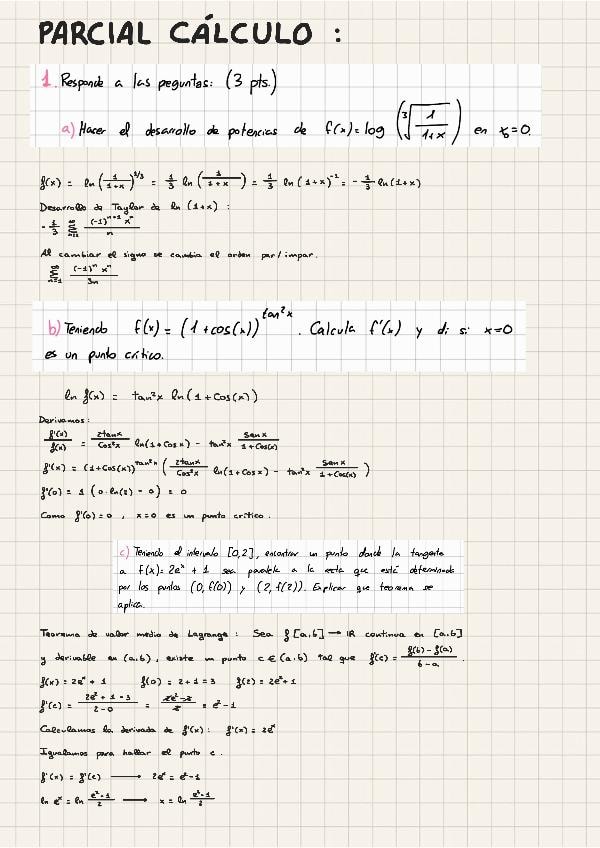 PARCIAL CÁLCULO :
1. Responde a las peguntas: (3 pts.)
a) Hacer el desarrollo de potencias de f(x)=log (∛(1/(1+x))) en x₀=0.
f(x) = ln(1/(1+x))^(1/3) = 1/3 ln(1/(1+x)) = 1/3 ln(1+x)^-1 = - 1/3 ln(1+x)
Desarrollo de Taylor de ln (1+x) :
- 1/3 ∞Σn=1 (-1)^(n+1) x^n / n
Al cambiar el signo se cambia el orden par/impar.
∞Σn=1 (-1)^n x^n / 3n
b) Teniendo f(x) = (1+cos(x))^(tan²x) . Calcula f'(x) y di si x=0
es un punto crítico.
ln f(x) = tan²x ln(1+Cos(x))
Derivamos:
f'(x)/f(x) = 2tanx/Cos²x ln(1+Cosx) - tan²x Senx/(1+Cos(x))
f'(x) = (1+Cos(x))^(tan²x) ( 2tanx/Cos²x ln(1+Cosx) - tan²x Senx/(1+Cos(x)) )
f'(0) = 1 (0·ln(2) - 0) = 0
Como f'(0)=0 , x=0 es un punto crítico.
c) Teniendo el intervalo [0,2], encontrar un punto donde la tangente
a f(x)= 2e^x + 1 sea paralela a la recta que está determinada
por los puntos (0, f(0)) y (2, f(2)). Explicar que teorema se
aplica.
Teorema de valor medio de Lagrange : Sea f [a,b] → IR continua en [a,b]
y derivable en (a,b) , existe un punto c ∈ (a,b) tal que f'(c) = (f(b) - f(a))/(b-a) .
f(x) = 2e^x + 1 f(0) = 2+1 = 3 f(2) = 2e²+1
f'(c) = (2e² + 1 - 3)/(2-0) = (2e² - 2)/2 = e²-1
Calculamos la derivada de f'(x) : f'(x) = 2e^x
Igualamos para hallar el punto c .
f'(x) = f'(c) → 2e^x = e²-1
ln e^x = ln (e²-1)/2 → x = ln (e²-1)/2